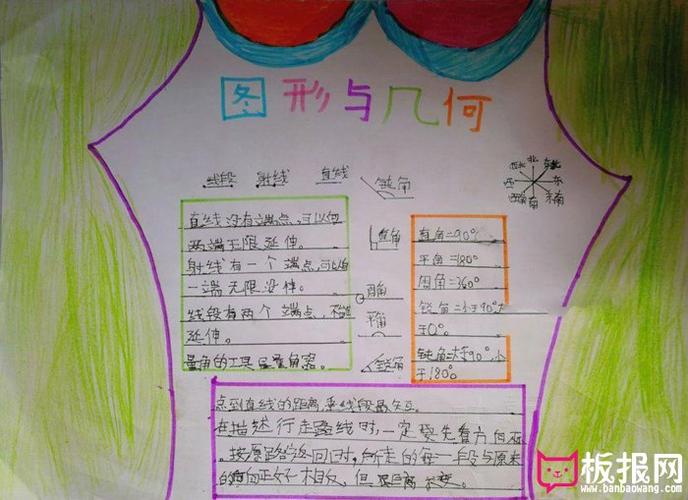 图形与几何
线段 射线 直线 钝角
西北 北 东北
西 东
西南 南 东南
直线没有端点，可以向
两端无限延伸。
射线有一个端点，可以向
一端无限延伸。
线段有两个端点，不能
延伸。
量角的工具是量角器。
直角
周角
平角
锐角
直角=90°
平角=180°
周角=360°
锐角=小于90°大
于0°。
钝角=大于90°，小
于180°
点到直线的距离，垂线段最短。
在描述行走路线时，一定要先看方向
。按原路返回时，所走的每一段与原来
的方向正好相反，但是距离不变。
板报网
www.banbaowang.com